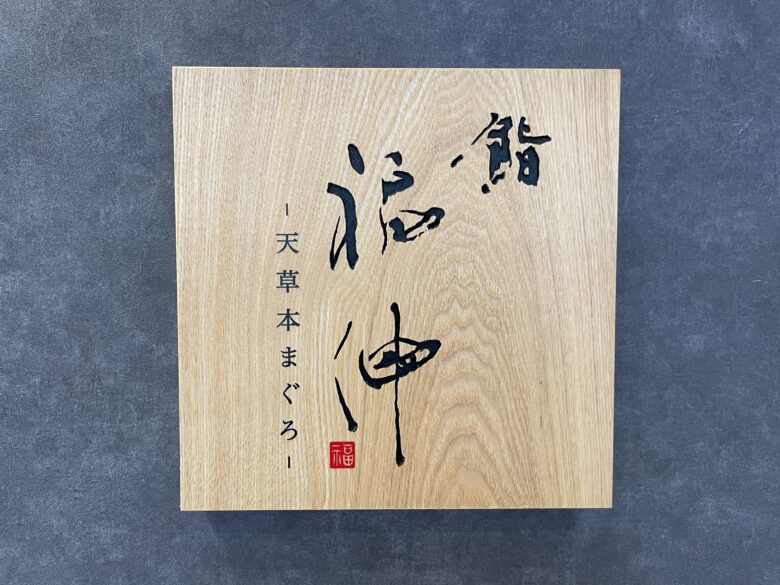 鮨
福伸
-天草本まぐろ-
福